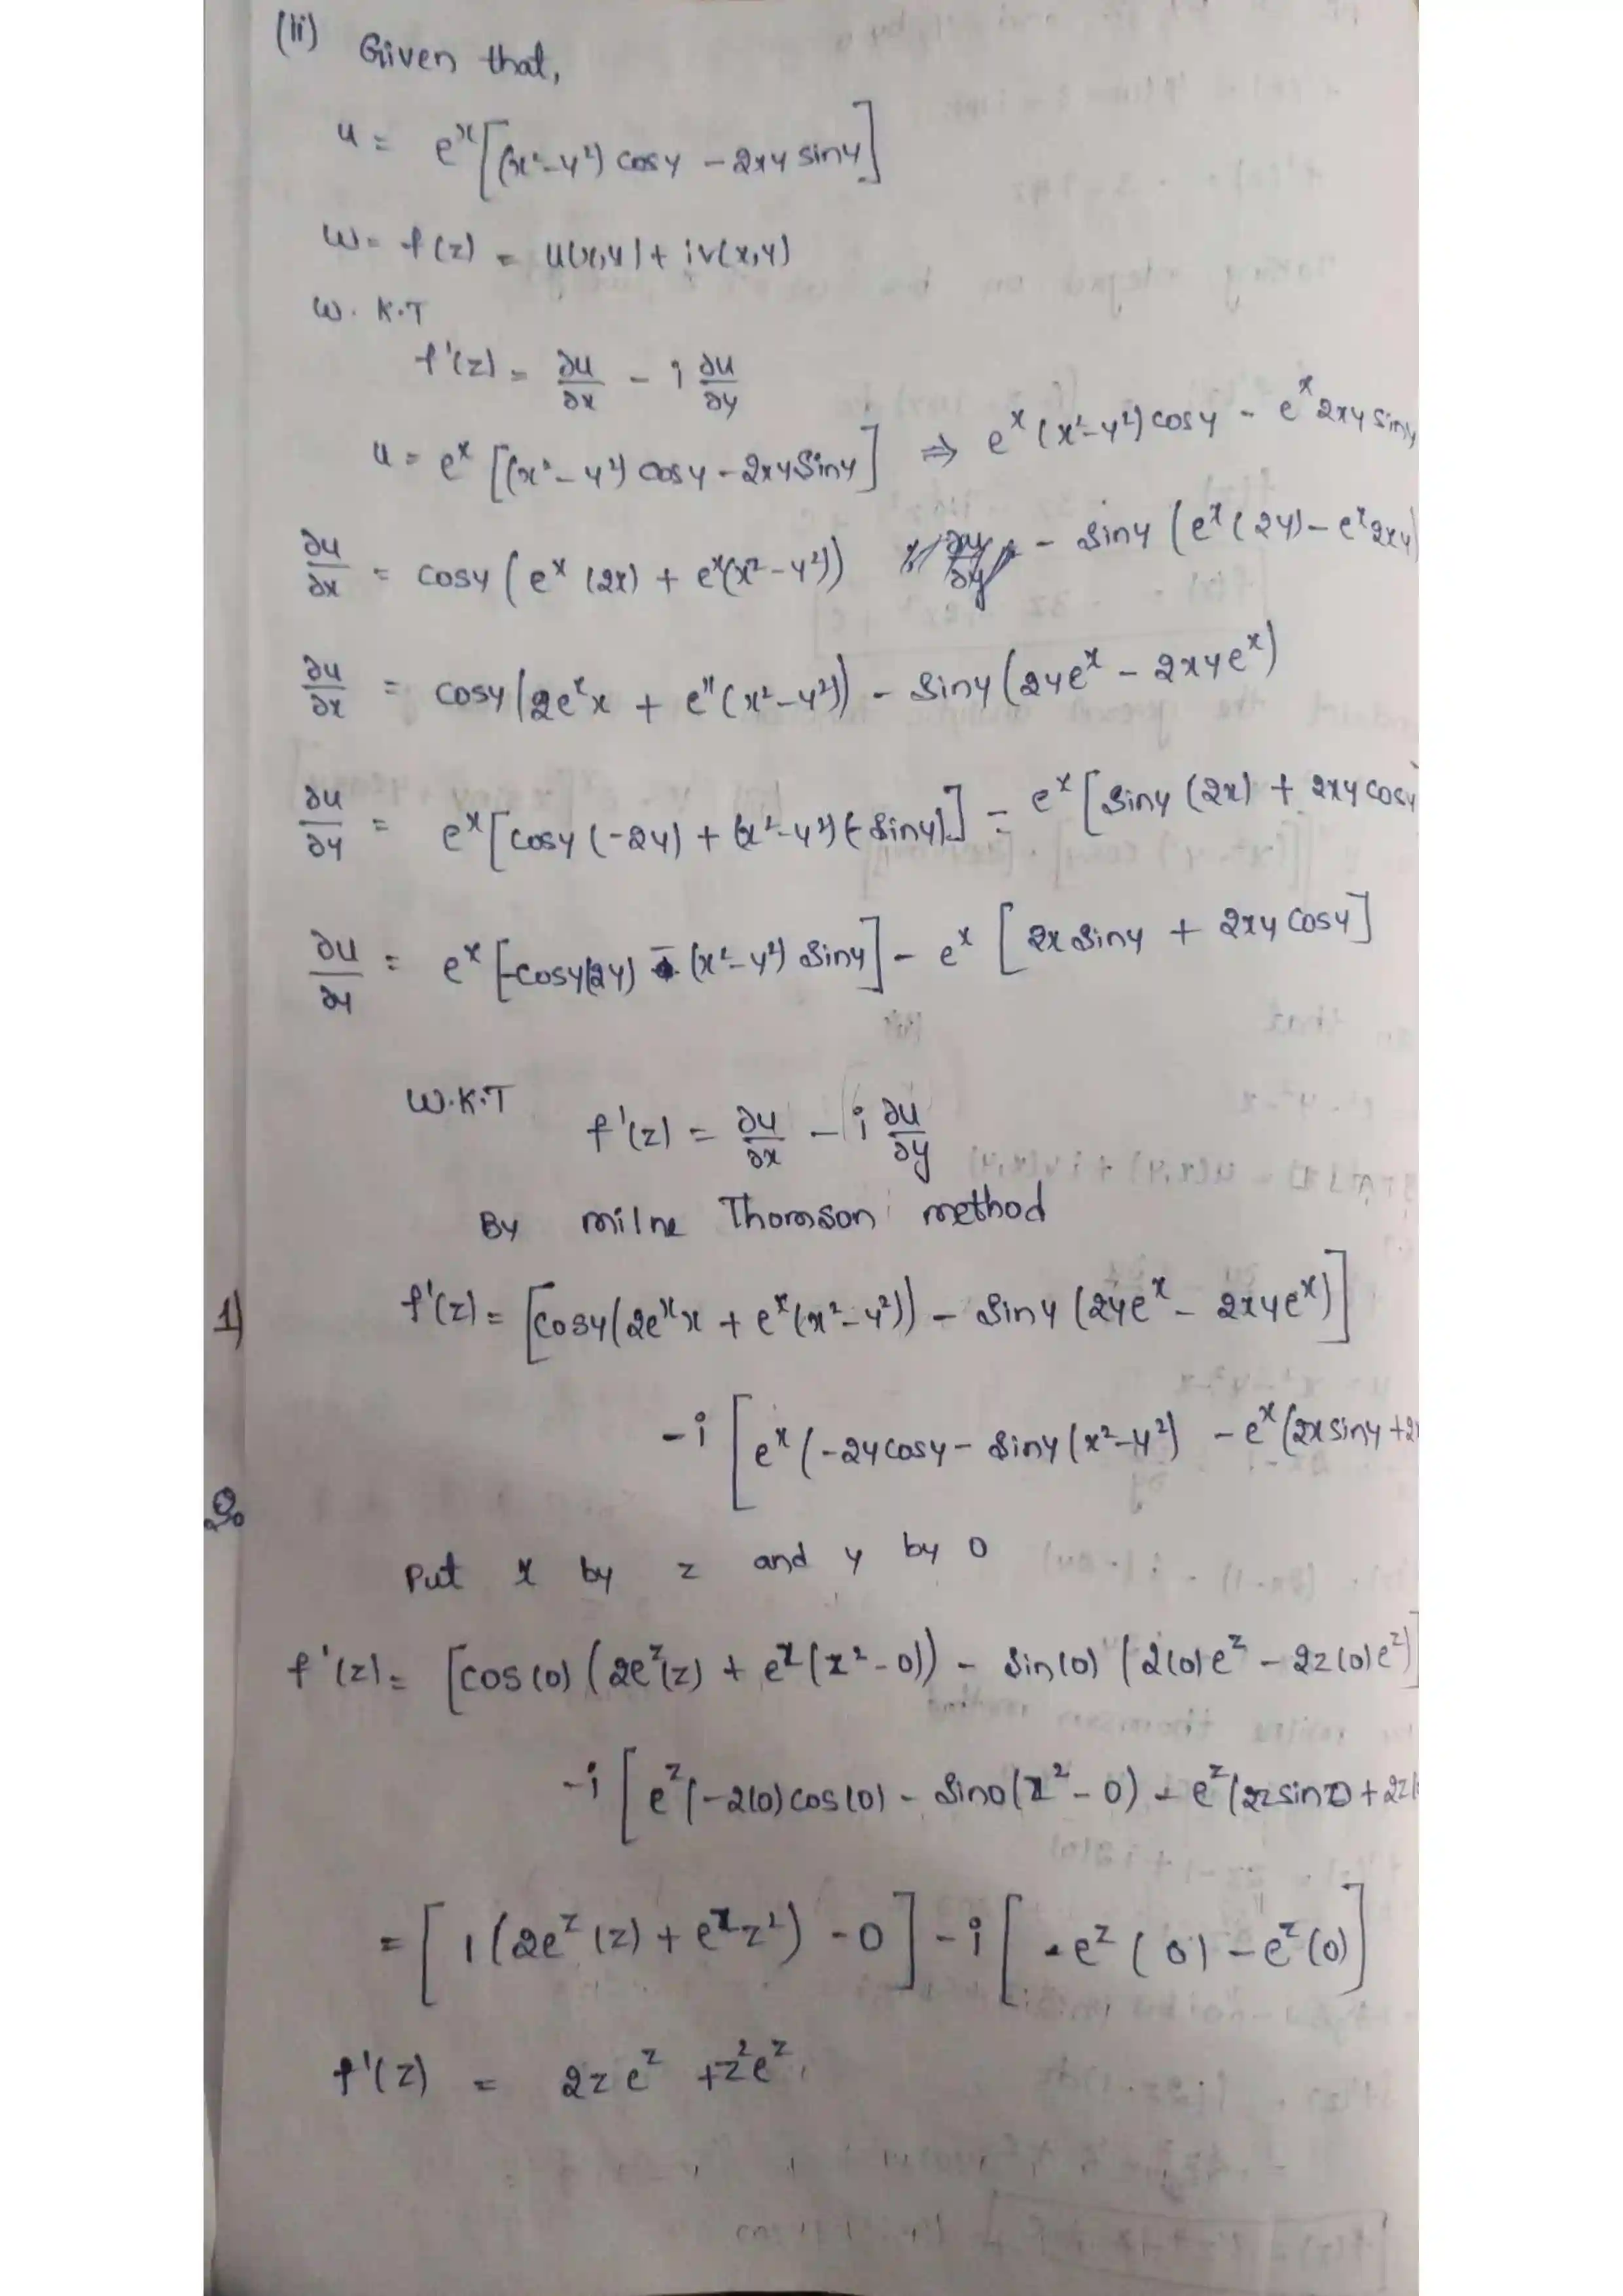 (ii) Given that,
u = e^x[(x²-y²) cosy - 2xy siny]
w = f(z) = u(x,y) + iv(x,y)
W.K.T
f'(z) = ∂u/∂x - i ∂u/∂y
u = e^x [(x²-y²) cosy - 2xy siny] ⇒ e^x (x²-y²) cosy - e^x 2xy siny
∂u/∂x = cosy (e^x (2x) + e^x(x²-y²)) - siny (e^x (2y) - e^x 2xy)
∂u/∂x = cosy (2e^x x + e^x (x²-y²)) - siny (2ye^x - 2xye^x)
∂u/∂y = e^x [cosy (-2y) + (x²-y²)(-siny)] - e^x [siny (2x) + 2xy cosy
∂u/∂y = e^x [-cosy(2y) - (x²-y²) siny] - e^x [2x siny + 2xy cosy]
W.K.T f'(z) = ∂u/∂x - i ∂u/∂y
By milne Thomson method
1) f'(z) = [cosy(2e^x x + e^x (x²-y²)) - siny (2ye^x - 2xye^x)]
-i [e^x (-2y cosy - siny (x²-y²) - e^x (2x siny + 2
2.
Put x by z and y by 0
f'(z) = [cos(0) (2e^z(z) + e^z (z²-0)) - sin(0) (2(0)e^z - 2z(0)e^z)]
-i [e^z(-2(0) cos(0) - sin0(z²-0) - e^z(2z sin0 + 2z(
= [1(2e^z (z) + e^z z²) - 0] - i [-e^z (0) - e^z (0)]
f'(z) = 2z e^z + z² e^z